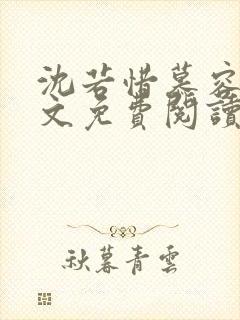 沈若惜慕容
文免費閱讀
秋暮青雲